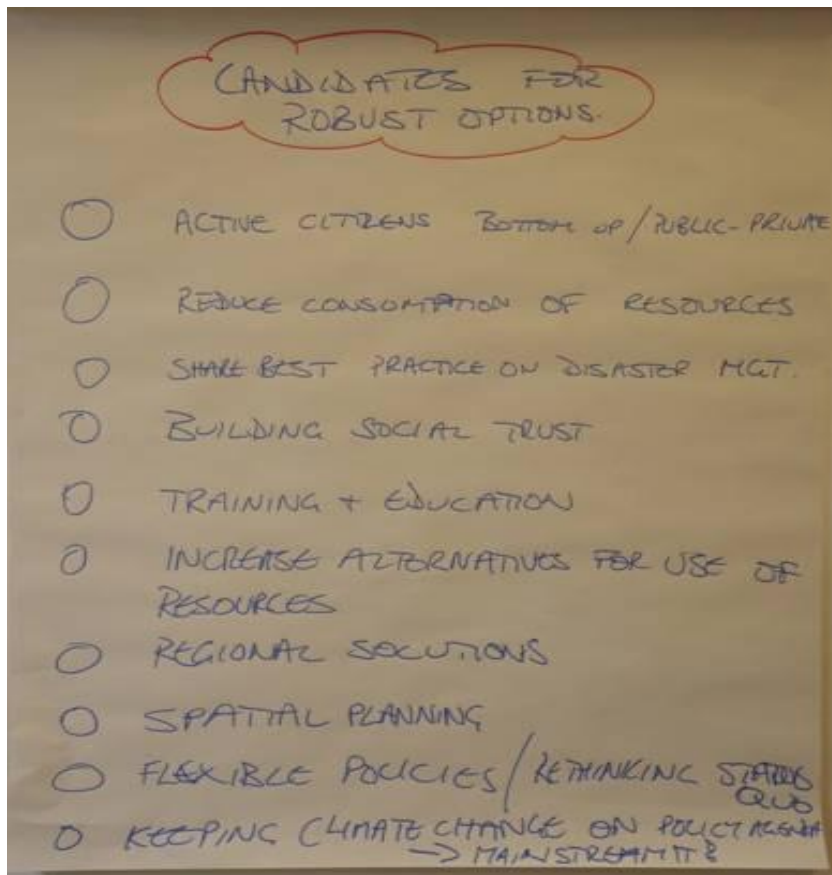 CANDIDATES FOR
ROBUST OPTIONS.
ACTIVE CITIZENS BOTTOM UP/PUBLIC-PRIVATE
REDUCE CONSOMPTION OF RESOURCES
SHARE BEST PRACTICE ON DISASTER MGT.
BUILDING SOCIAL TRUST
TRAINING + EDUCATION
INCREASE ALTERNATIVES FOR USE OF
RESOURCES
REGIONAL SOLUTIONS
SPATIAL PLANNING
FLEXIBLE POLICIES/RETHINKING STATUS
QUO
KEEPING CLIMATE CHANGE ON POLICY AGENDA
→ MAINSTREAM IT?